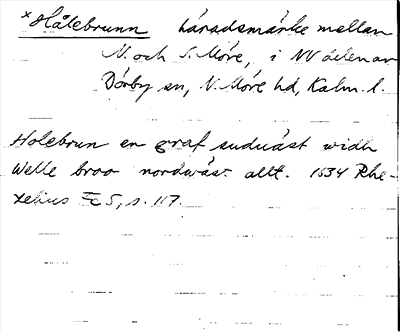 *Hålebrunn häradsmärke mellan
N. och S. Möre, i NV delen av
Dörby sn, N. Möre hd, Kalm. l.
Holebrun en graf suduäst widh
Welle broo nordwäst allt. 1634 Rhe-
zelius Fc 5, s. 117.